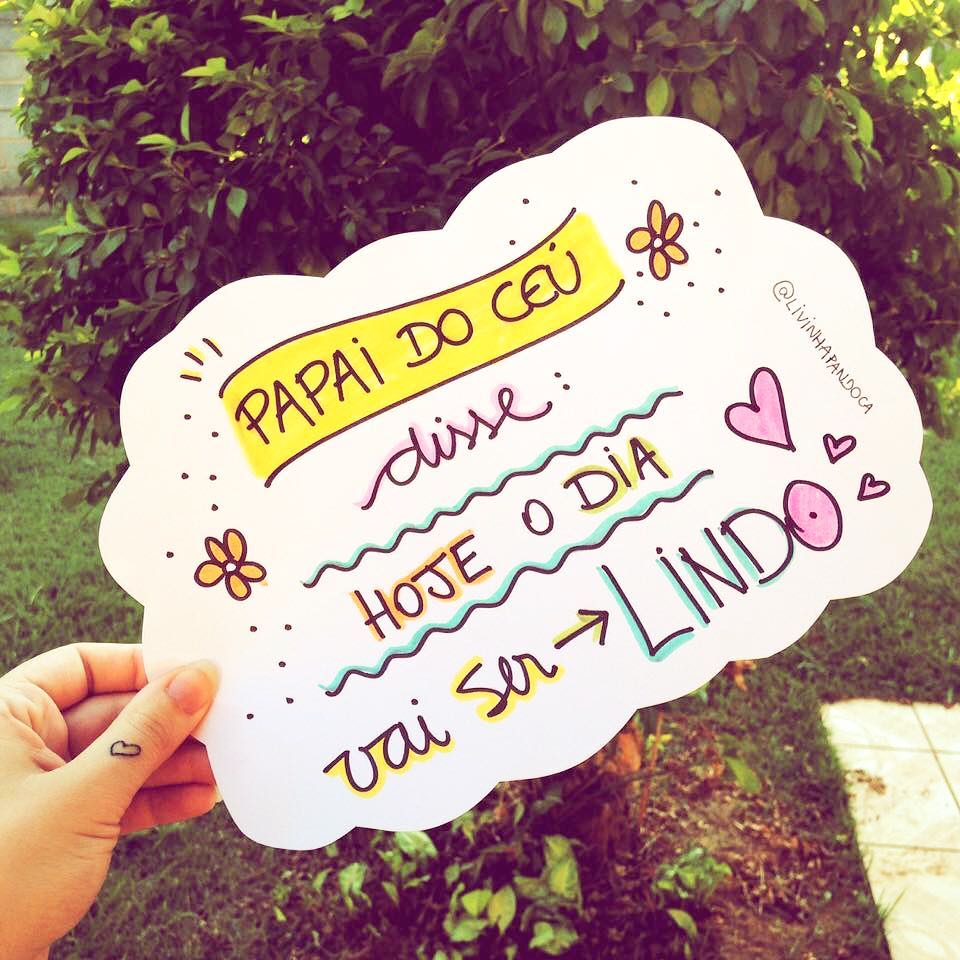 PAPAi DO CEÚ
disse:
HOJE O DiA
vai ser → LiNDO
@LiViNHAPANDOCA